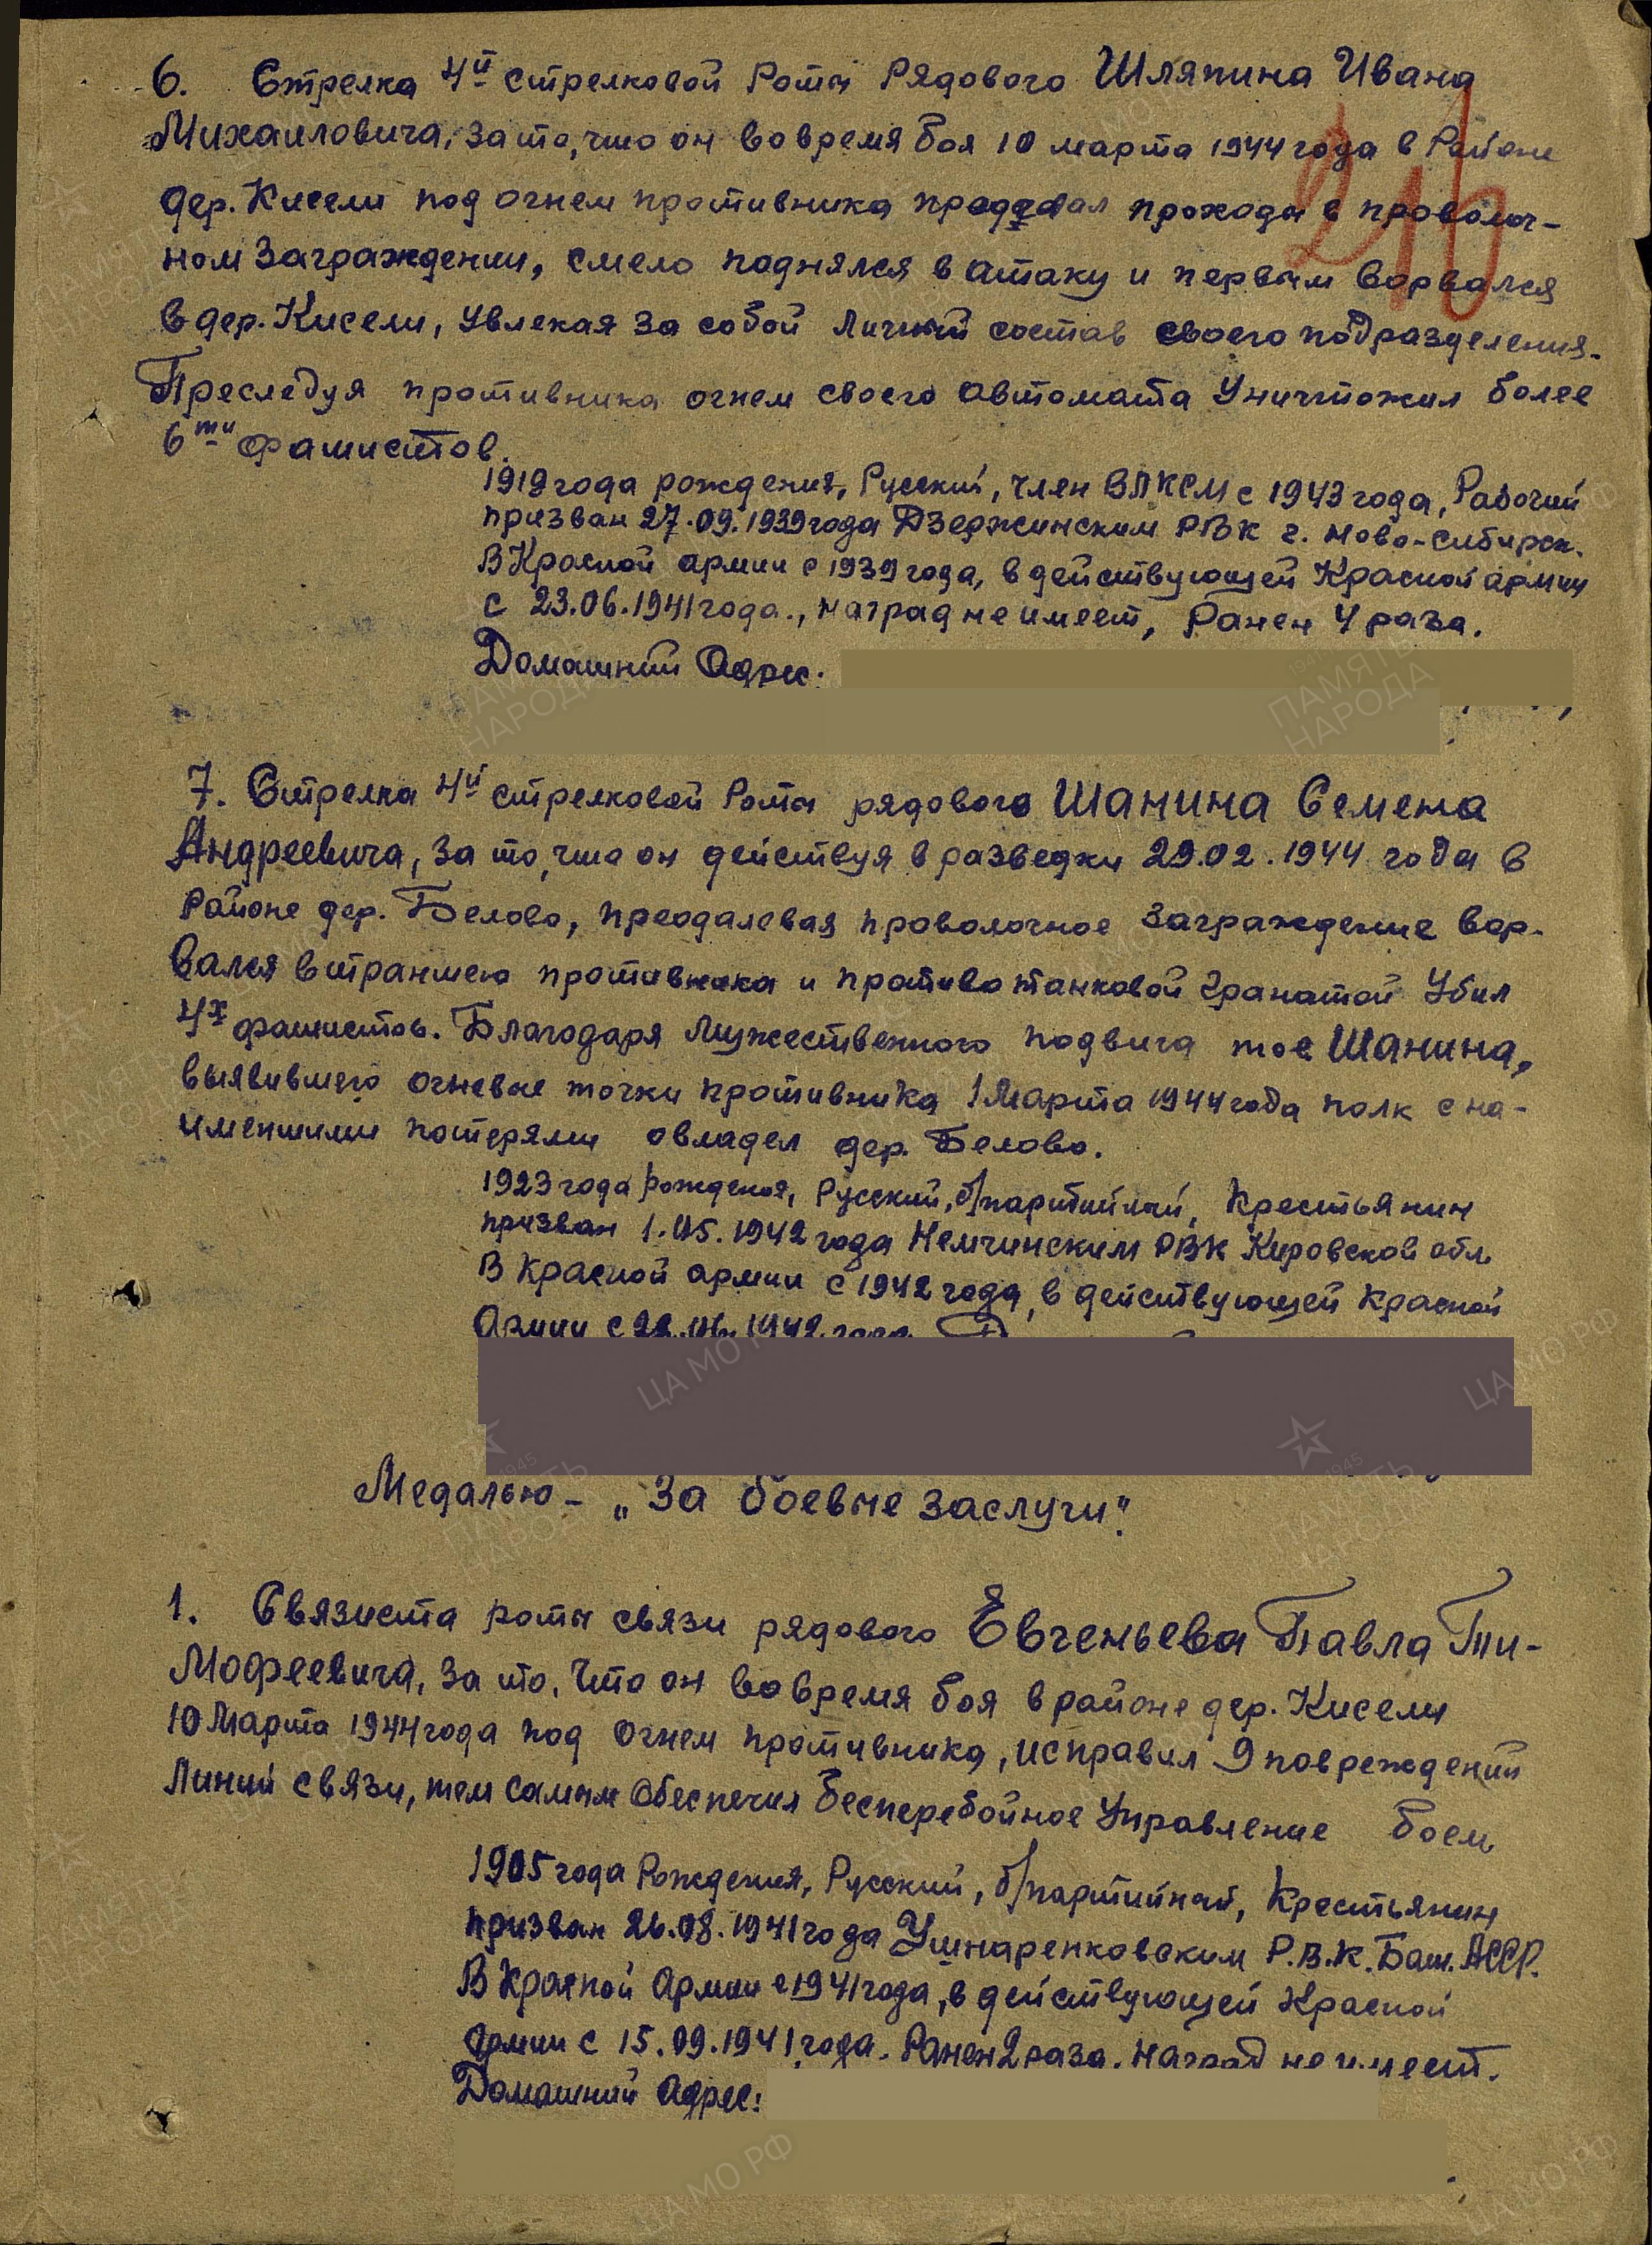 6. Стрелка 4й стрелковой Роты Рядового Шляпина Ивана
Михаиловича, за то, что он во время боя 10 марта 1944 года в Районе
дер. Кисели под огнем противника проделал проходы в проволоч-
ном заграждении, смело поднялся в атаку и первым ворвался
в дер. Кисели, увлекая за собой личный состав своего подразделения.
Преследуя противника огнем своего автомата уничтожил более
6ти фашистов.
216
1919 года рождения, Русский, член ВЛКСМ с 1943 года, Рабочий
призван 27.09.1939 года Дзержинским РВК г. Ново-Сибирск.
В Красной армии с 1939 года, в действующей Красной армии
с 23.06.1941 года., наград не имеет, Ранен 4 раза.
Домашний Адрес.
7. Стрелка 4й стрелковой Роты рядового Шанина Семена
Андреевича, за то, что он действуя в разведки 29.02.1944 года в
Районе дер. Белово, преодалевая проволочное заграждение вор-
вался в траншею противника и противотанковой гранатой убил
4х фашистов. Благодаря мужественного подвига тов Шанина,
выявившего огневые точки противника 1 Марта 1944 года полк с на-
именшими потерями овладел дер. Белово.
1923 года рождения, Русский, б/партийный, Крестьянин
призван 1.05.1942 года Немчинским РВК Кировской обл.
В Красной армии с 1942 года, в действующей Красной
Армии с 28.06.1942 года.
Медалью - „За боевые заслуги".
1. Связиста роты связи рядового Евгеньева Павла Ти-
мофеевича, за то, что он во время боя в районе дер. Кисели
10 Марта 1944 года под огнем противника, исправил 9 повреждений
Линий связи, тем самым обеспечил бесперебойное управление боем.
1905 года Рождения, Русский, б/партийный, Крестьянин
призван 26.08.1941 года Ушнаренковским Р.В.К. Баш. АССР.
В Красной Армии с 1941 года, в действующей Красной
Армии с 15.09.1941 года. Ранен 2 раза. Наград не имеет.
Домашний Адрес: